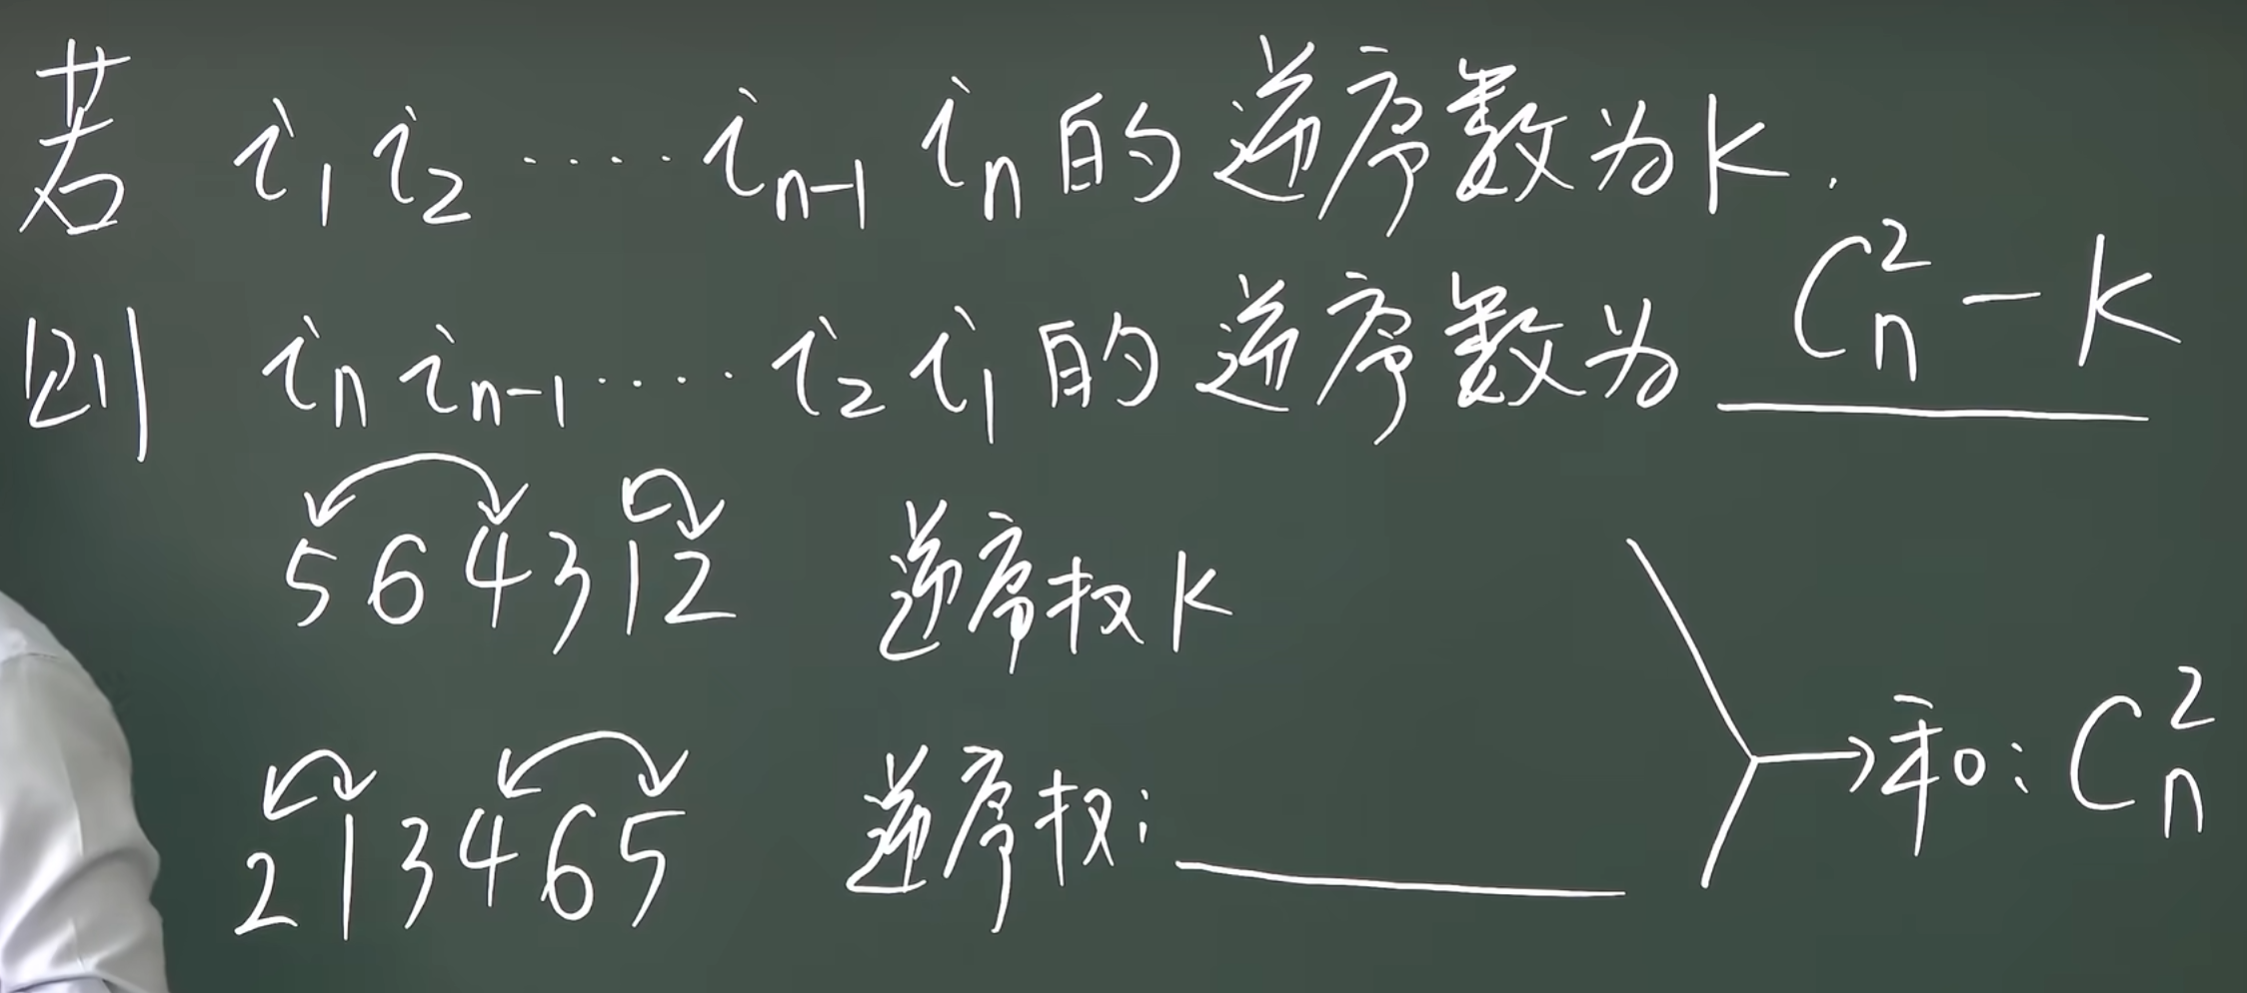 若 i₁ i₂ ····· iₙ₋₁ iₙ 的逆序数为k.
则 iₙ iₙ₋₁ ····· i₂ i₁ 的逆序数为 Cₙ² - k
5 6 4 3 1 2 逆序权 k
2 1 3 4 6 5 逆序权: ______ → 和: Cₙ²